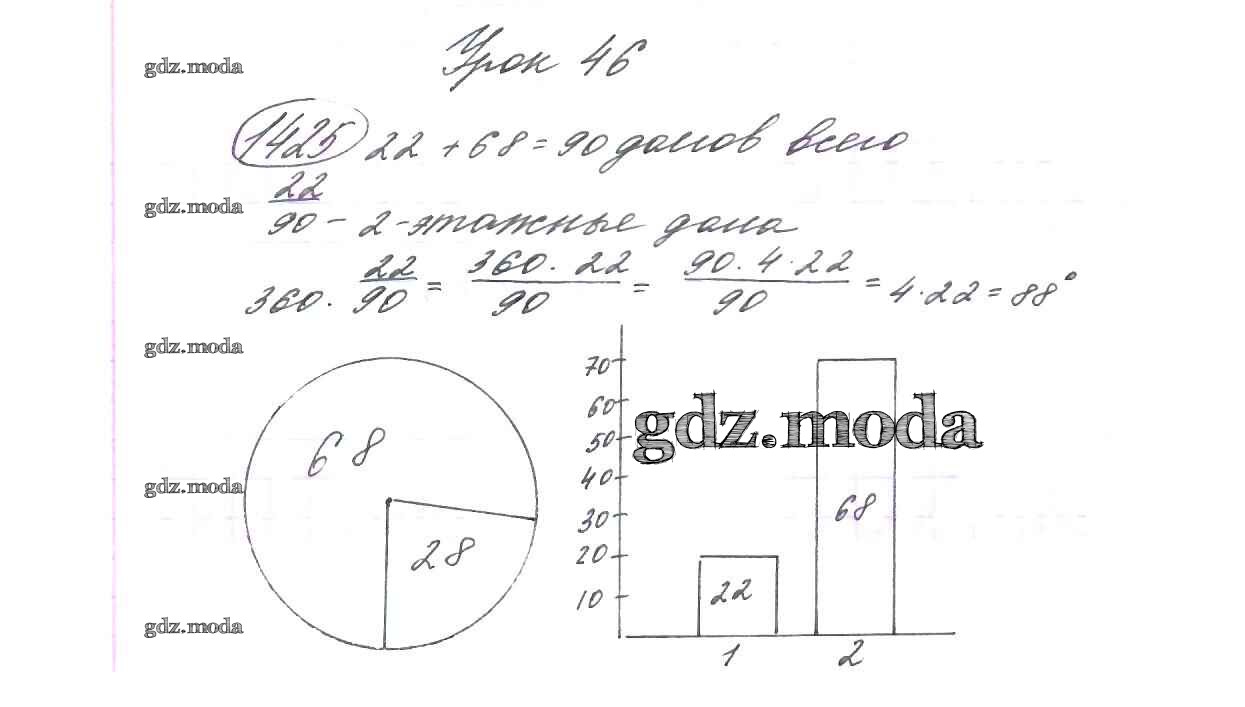 Урок 46
gdz.moda
1425 22 + 68 = 90 домов всего
22
gdz.moda
90 - 2-этажные дома
360 · 22/90 = 360 · 22/90 = 90 · 4 · 22/90 = 4 · 22 = 88°
gdz.moda
70
60
gdz.moda
50
68
40
gdz.moda
30
68
20
28
22
10
gdz.moda
1 2